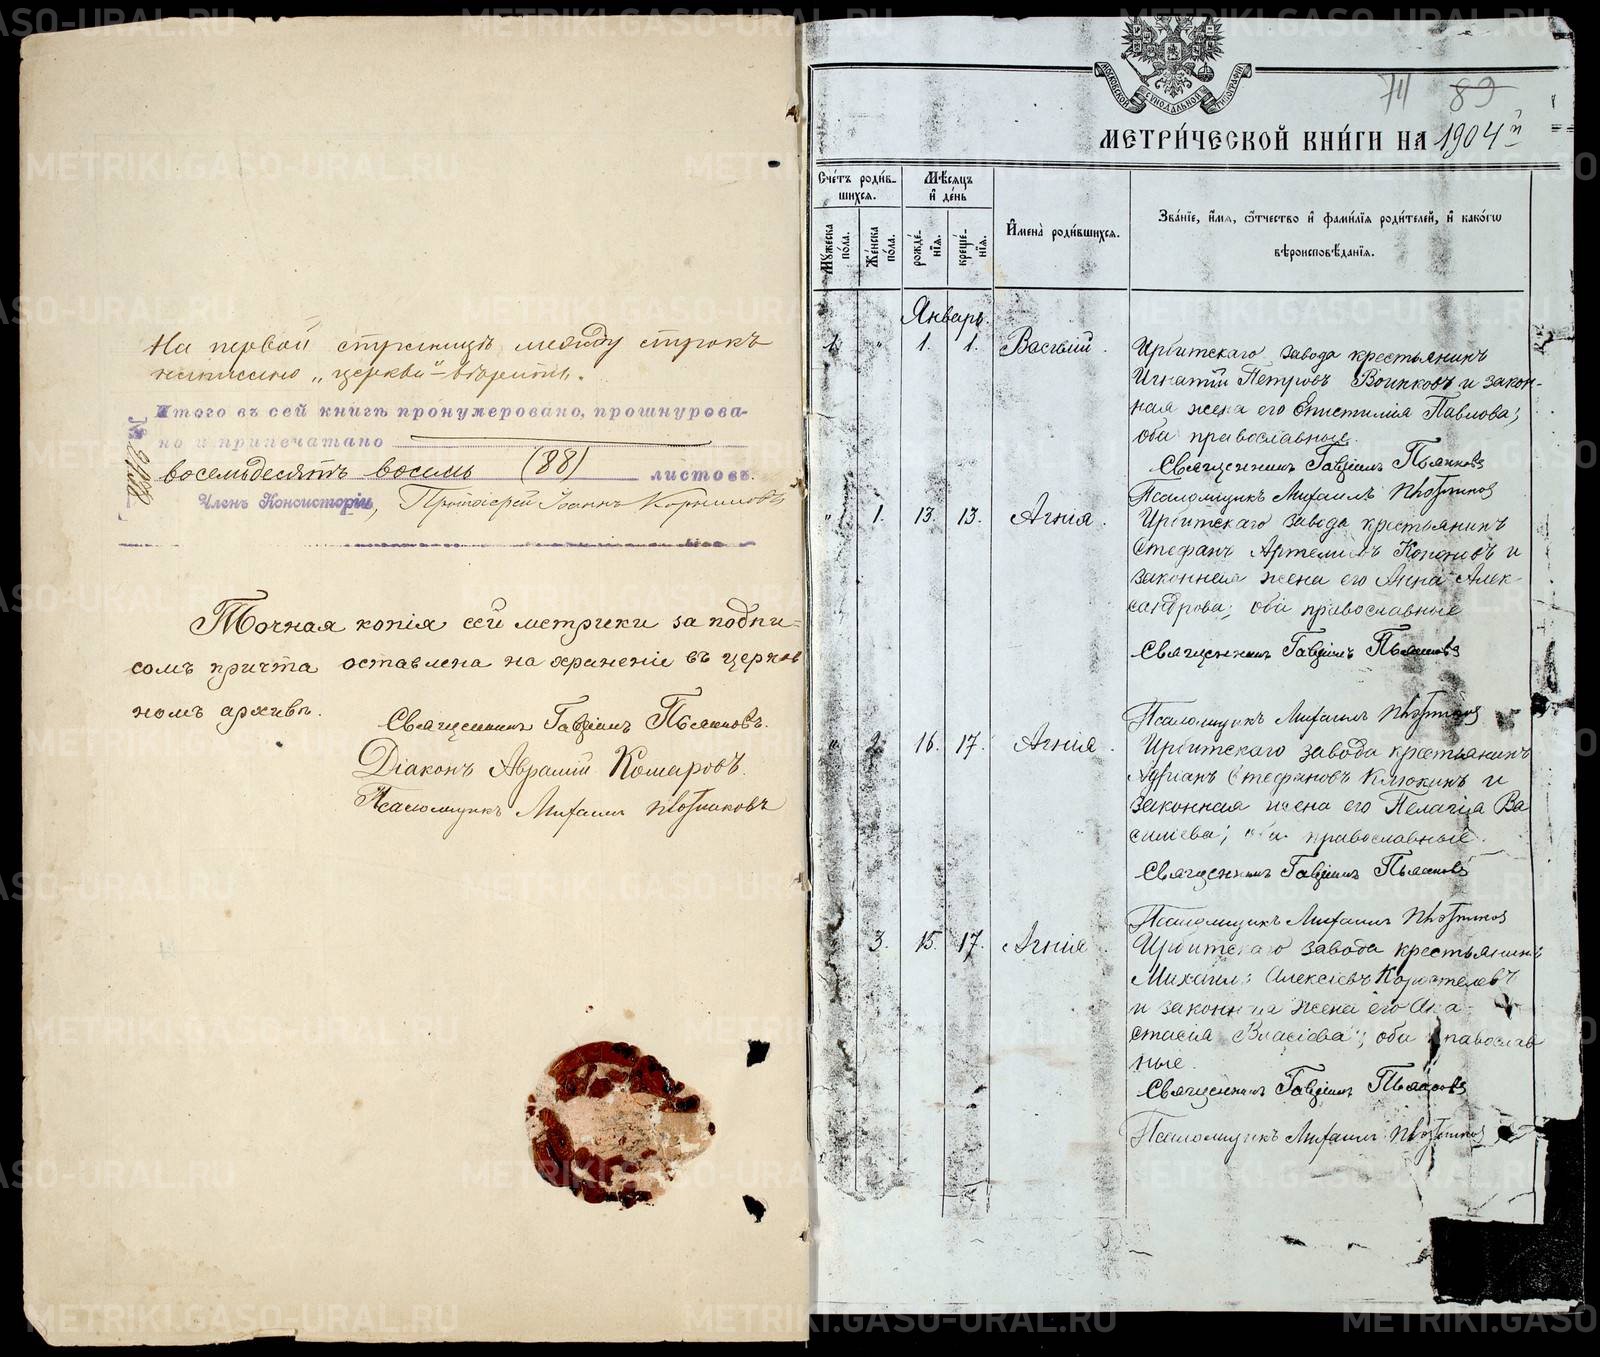 На первой страницѣ между строкъ
написано „церкви“ – вѣрить.
Итого въ сей книгѣ пронумеровано, прошнурова-
но и припечатано
восемьдесятъ восемь (88) листовъ.
Членъ Консисторіи, Протоіерей Іоаннъ
Точная копія сей метрики за подпи-
сомъ причта оставлена на храненіе въ церков
номъ архивѣ.
Священникъ Гавріилъ Пьянковъ.
Діаконъ Авраамій Комаровъ.
Псаломщикъ Михаилъ Плотниковъ
МОСКОВСКОЙ СѴНОДАЛЬНОЙ ТИПОГРАФІИ
74 89
МЕТРИ́ЧЕСКОЙ КНИ́ГИ НА 1904й
Сче́тъ роди́в-
шихся.
Му́жеска по́ла.
Же́нска по́ла.
Мѣ́сяцъ
и҆ де́нь
рожде́-нія.
креще́-нія.
И҆мена̀ роди́вшихся.
Зва́ніе, и҆́мя, ѻ҆́тчество и҆ фами́лія роди́телей, и҆ како́гѡ
вѣроисповѣ́данія.
Январь.
1. „ 1. 1. Василій.
Ирбитскаго завода крестьянинъ
Игнатій Петровъ Воинковъ и закон-
ная жена его Епистимія Павлова;
оба православные.
Священникъ Гавріилъ Пьянковъ
Псаломщикъ Михаилъ Плотниковъ
„ 1. 13. 13. Агнія.
Ирбитскаго завода крестьянинъ
Стефанъ Артемьевъ Кононовъ и
законная жена его Анна Алек-
сандрова; оба православные
Священникъ Гавріилъ Пьянковъ
Псаломщикъ Михаилъ Плотниковъ
„ 2. 16. 17. Агнія.
Ирбитскаго завода крестьянинъ
Адріанъ Стефановъ Клюкинъ и
законная жена его Пелагія Ва
сильева; оба православные.
Священникъ Гавріилъ Пьянковъ
Псаломщикъ Михаилъ Плотниковъ
3. 15. 17. Агнія.
Ирбитскаго завода крестьянинъ
Михаилъ Алексіевъ Коростелевъ
и законная жена его Ана-
стасія Власіева; оба православ
ные.
Священникъ Гавріилъ Пьянковъ
Псаломщикъ Михаилъ Плотниковъ
METRIKI.GASO-URAL.RU